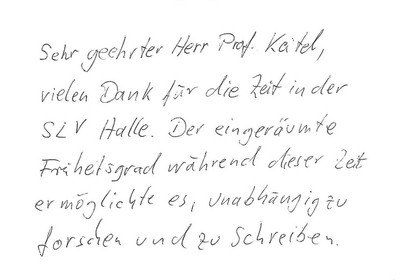 Sehr geehrter Herr Prof. Keitel,
vielen Dank für die Zeit in der
SLV Halle. Der eingeräumte
Freiheitsgrad während dieser Zeit
ermöglichte es, unabhängig zu
forschen und zu schreiben.